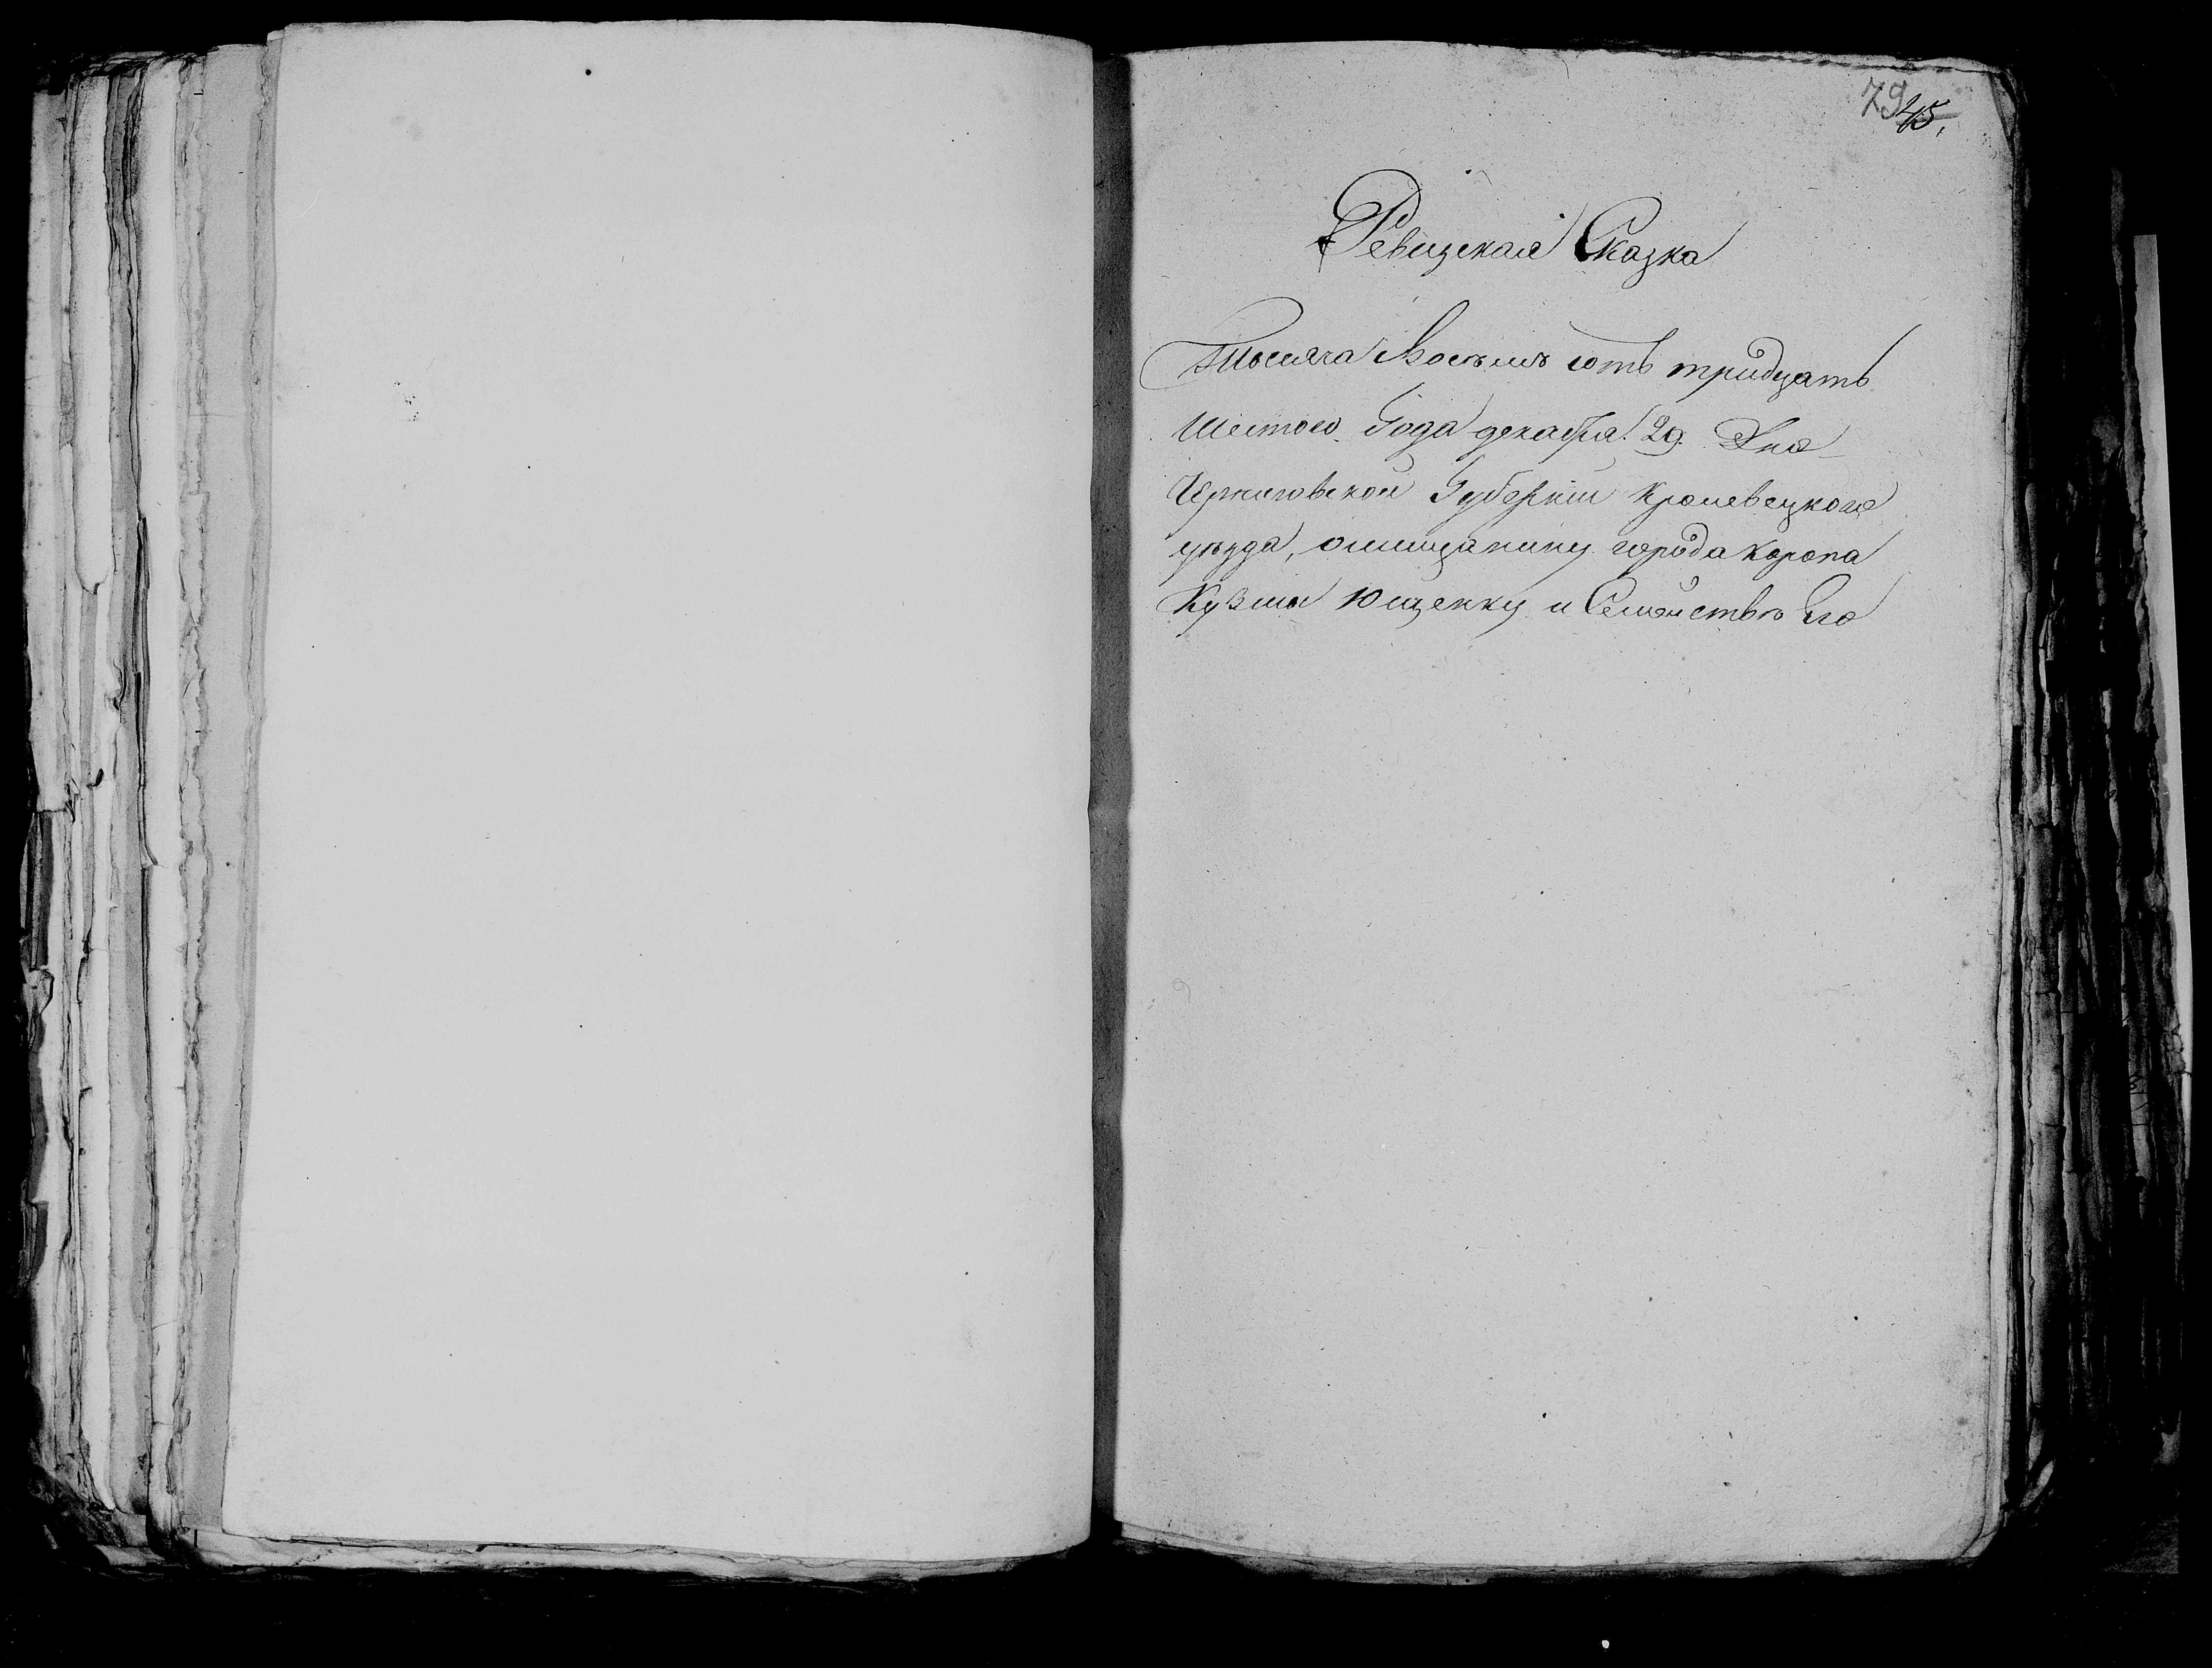 79 45.
Ревизская Сказка
Тысяча Восѣмъ сотъ тридцать
Шестого Года декабря 29 Дня
Черниговской Губерніи Кролевецкого
уѣзда, омищанину города Коропа
Кузма Ющенку и Семействѣ Его